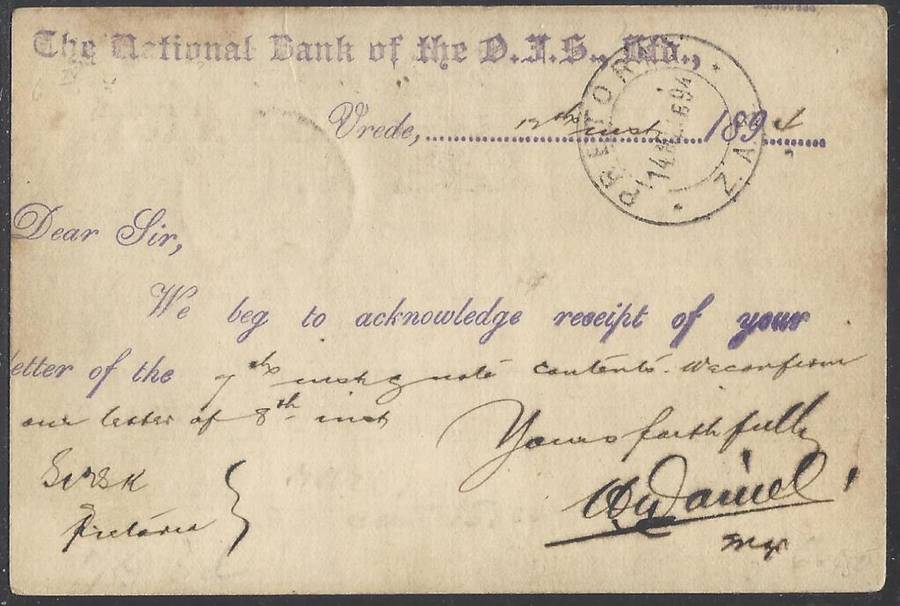 The National Bank of the O.F.S., Ltd.,
PRETORIA Z.A.R.
14 694
Vrede, 12th inst 1894
Dear Sir,
We beg to acknowledge receipt of your
letter of the 7th inst & note contents. We confirm
our letter of 8th inst
Yours faithfully
Pretoria
McDaniel
Mgr